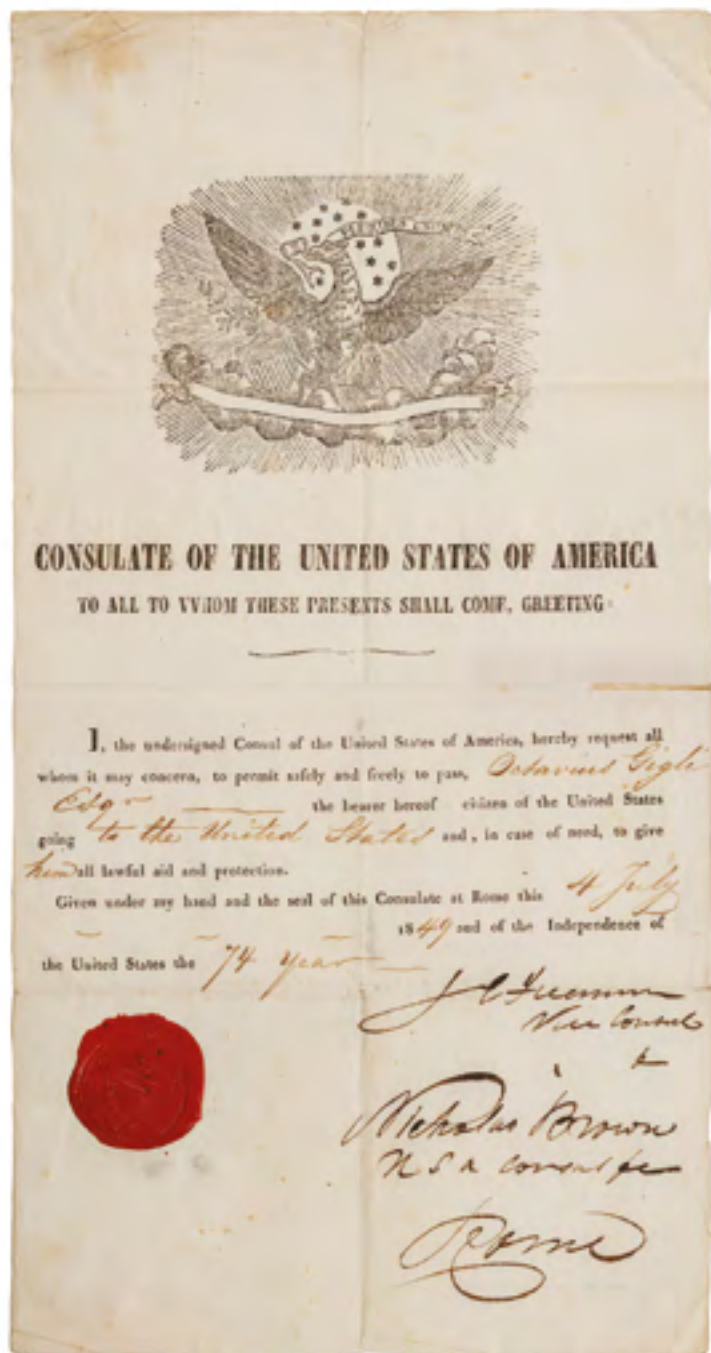 CONSULATE OF THE UNITED STATES OF AMERICA
TO ALL TO VVHOM THESE PRESENTS SHALL COME, GREETING
I, the undersigned Consul of the United States of America, hereby request all
whom it may concern, to permit safely and freely to pass, Octavius Gigli
Esqr the bearer hereof citizen of the United States
going to the United States and, in case of need, to give
him all lawful aid and protection.
Given under my hand and the seal of this Consulate at Rome this 4 July
1849 and of the Independence of
the United States the 74 year
J C Freeman
Vice Consul
Nicholas Brown
U S A consul for
Rome